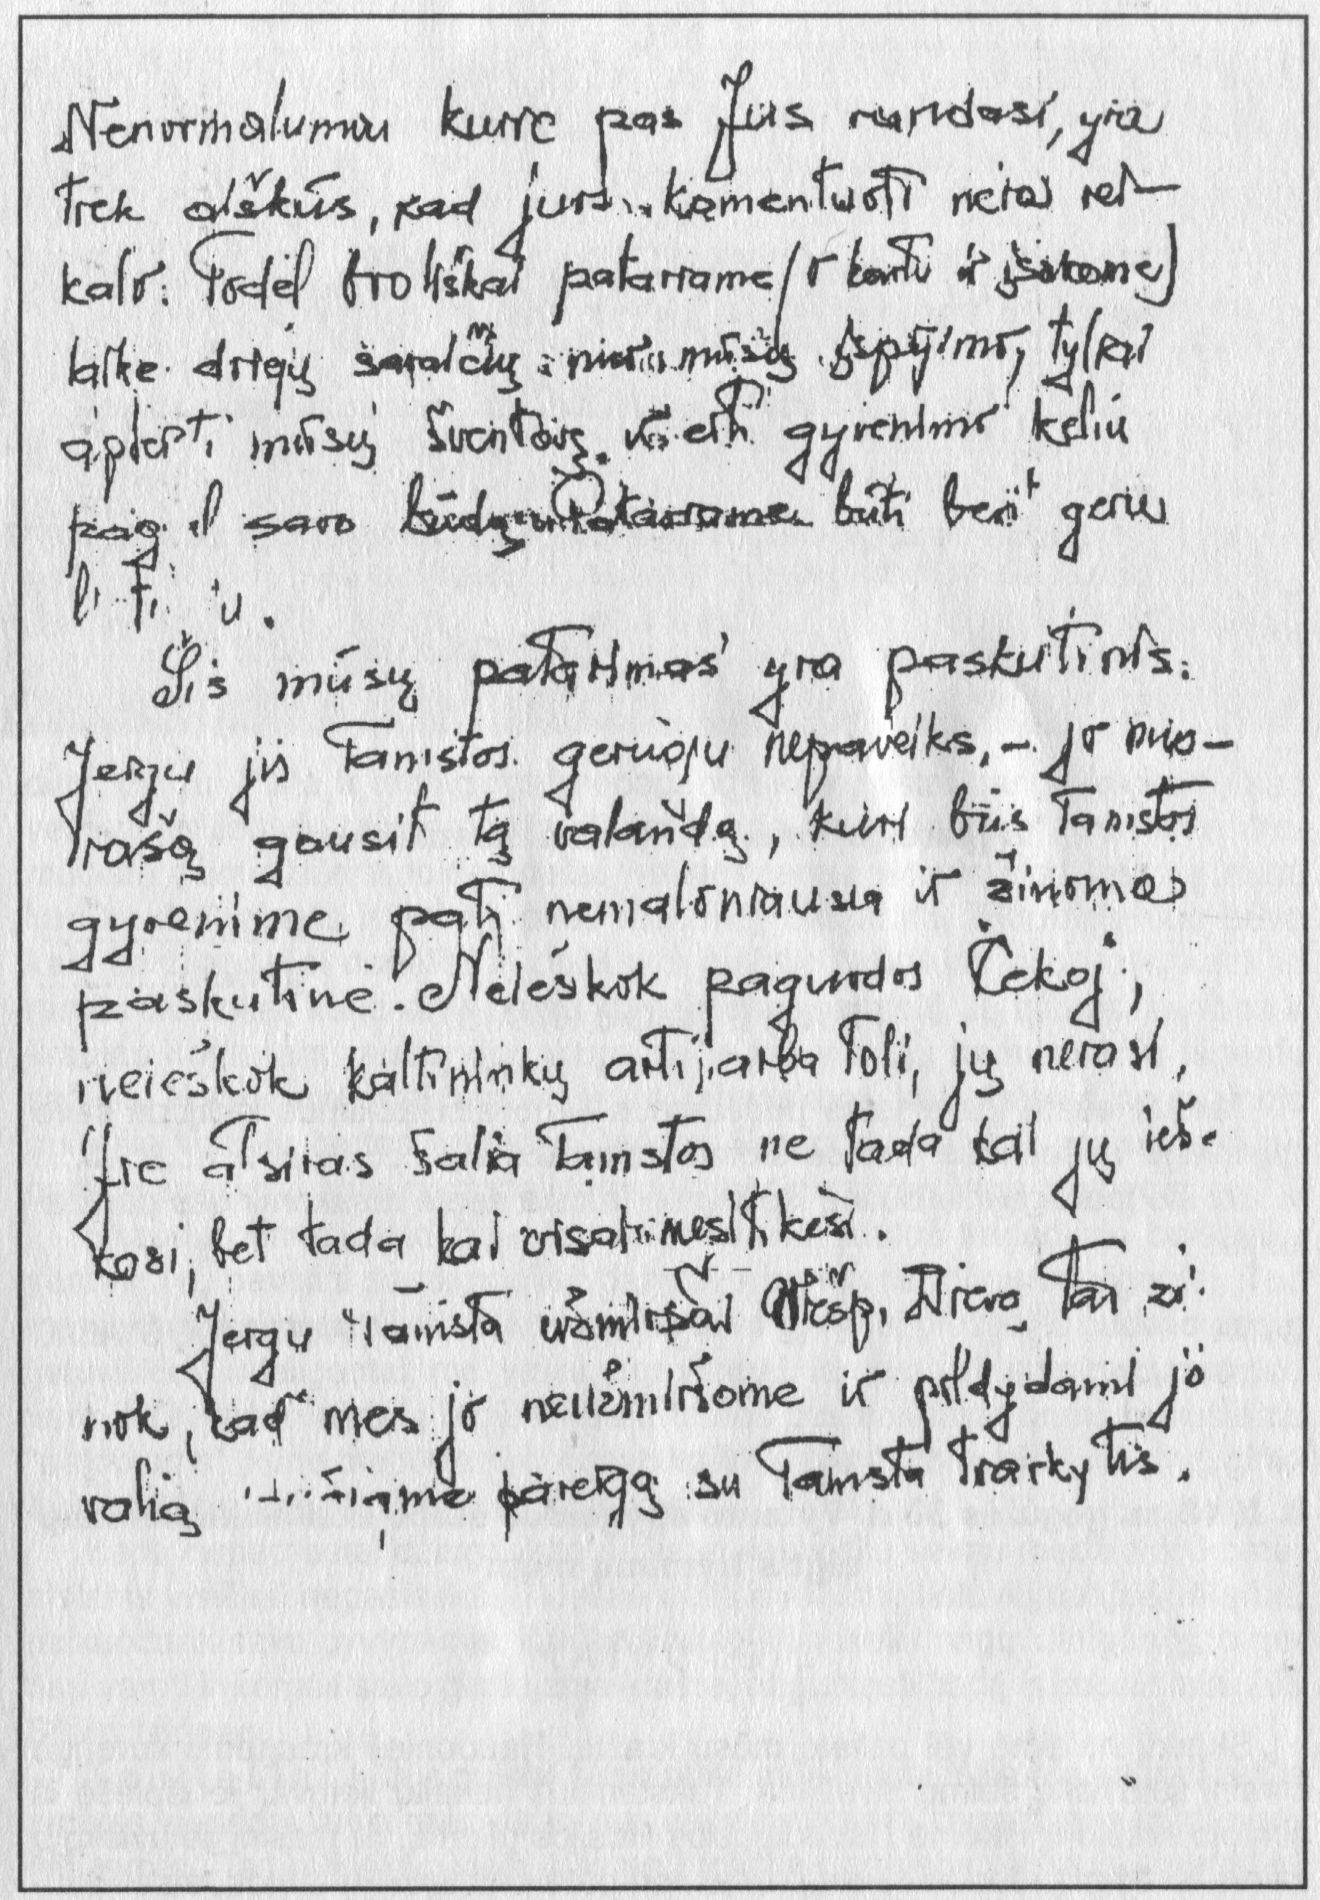 Nenormalumai kurie pas Jus randasi, yra
tiek aiškūs, kad juos komentuoti nėra rei-
kalo. Todėl broliškai patariame (o kartu ir įsakome)
laike dviejų savaičių nuo mūsų įspėjimo, tyliai
apleisti mūsų šventovę ir eiti gyvenimo keliu
pagal savo būdą. Patariame būti bent geru
Šis mūsų patarimas yra paskutinis.
Jeigu jis Tamstos geruoju nepaveiks, - jo nuo-
rašą gausit tą valandą, kuri bus Tamstos
gyvenime pati nemaloniausia ir žinoma
paskutinė. Neieškok pagundos Čekoj,
neieškok kaltininkų arti arba toli, jų nerasi,
Jie atsiras šalia Tamstos ne tada kai jų ieš-
kosi, bet tada kai visai nesitikėsi.
Jeigu Tamsta užmiršai Viešp. Dievą tai ži-
nok, kad mes jo neužmiršome ir pildydami jo
valią pareigą su Tamsta tvarkytis.